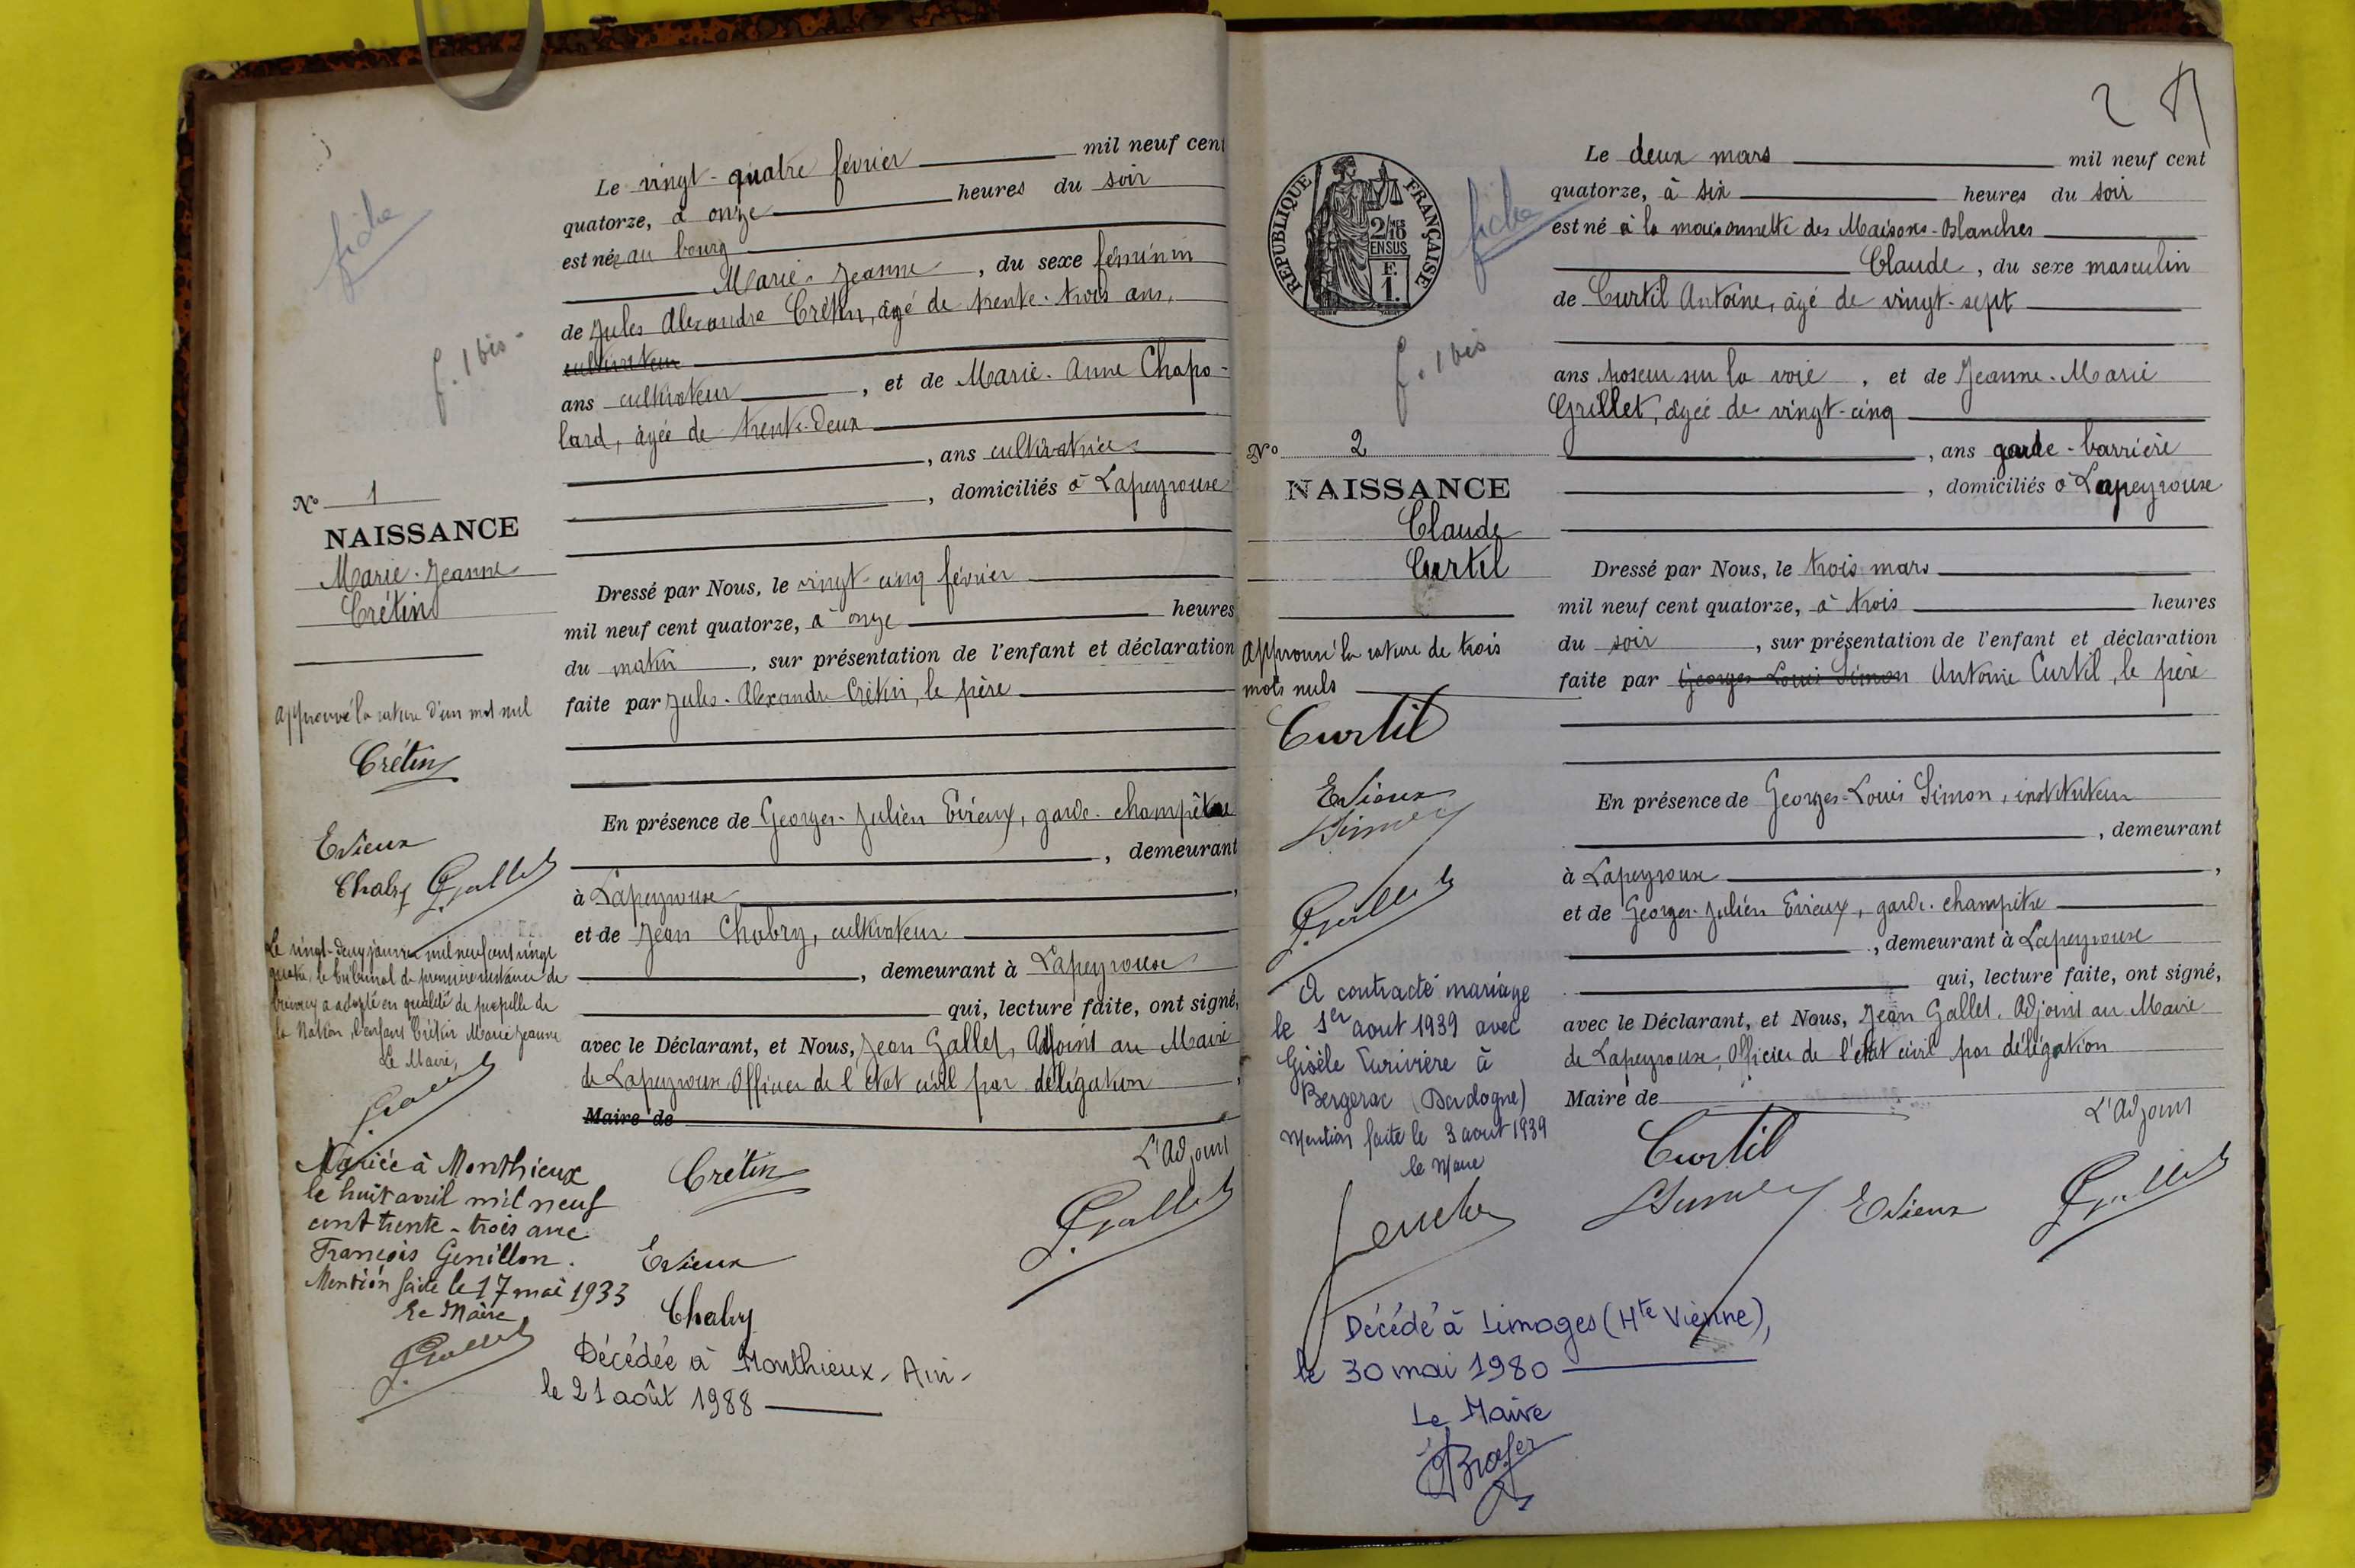 fiche
f. 1 bis
Le vingt-quatre février mil neuf cent
quatorze, à onze heures du soir
est née au bourg
Marie-Jeanne, du sexe féminin
de Jules Alexandre Crétin, âgé de trente-trois ans,
cultivateur
ans cultivateur, et de Marie-Anne Chapo-
lard, âgée de trente-deux
, ans cultivatrice
, domiciliés à Lapeyrouse
N° 1
NAISSANCE
Marie-Jeanne
Crétin
Dressé par Nous, le vingt-cinq février
mil neuf cent quatorze, à onze heures
du matin, sur présentation de l'enfant et déclaration
faite par Jules-Alexandre Crétin, le père
Approuvé la rature d'un mot nul
Crétin
Evieux
Chabry Gallet
En présence de Georges-Julien Evieux, garde-champêtre
, demeurant
à Lapeyrouse,
et de Jean Chabry, cultivateur
, demeurant à Lapeyrouse
qui, lecture faite, ont signé,
avec le Déclarant, et Nous, Jean Gallet, Adjoint au Maire
de Lapeyrouse, Officier de l'état civil par délégation
Maire de
L'Adjoint
Crétin
Evieux
Chabry
Gallet
Le vingt-deux janvier mil neuf cent vingt
quatre, le tribunal de première instance de
Trévoux a adopté en qualité de pupille de
la Nation, l'enfant Crétin Marie Jeanne
Le Maire,
Mariée à Monthieux
le huit avril mil neuf
cent trente-trois avec
François Genillon.
Mention faite le 17 mai 1933
Le Maire
Décédée à Monthieux - Ain -
le 21 août 1988
2
REPUBLIQUE FRANÇAISE
2/10 MES
EN SUS
F.
1.
fiche
f. 1 bis
Le deux mars mil neuf cent
quatorze, à six heures du soir
est né à la maisonnette des Maisons-Blanches
Claude, du sexe masculin
de Curtil Antoine, âgé de vingt-sept
ans poseur sur la voie, et de Jeanne-Marie
Grillet, âgée de vingt-cinq
, ans garde-barrière
, domiciliés à Lapeyrouse
N° 2
NAISSANCE
Claude
Curtil
Dressé par Nous, le trois mars
mil neuf cent quatorze, à trois heures
du soir, sur présentation de l'enfant et déclaration
faite par Georges Louis Simon Antoine Curtil, le père
Approuvé la rature de trois
mots nuls
Curtil
Evieux
Simon
Gallet
En présence de Georges-Louis Simon, instituteur
, demeurant
à Lapeyrouse,
et de Georges-Julien Evieux, garde-champêtre
, demeurant à Lapeyrouse
qui, lecture faite, ont signé,
avec le Déclarant, et Nous, Jean Gallet, Adjoint au Maire
de Lapeyrouse, Officier de l'état civil par délégation
Maire de
L'Adjoint
Curtil
Simon Evieux Gallet
A contracté mariage
le 1er aout 1939 avec
Gisèle à
Bergerac (Dordogne)
Mention faite le 3 aout 1939
le Maire
Décédé à Limoges (Hte Vienne),
le 30 mai 1980
Le Maire